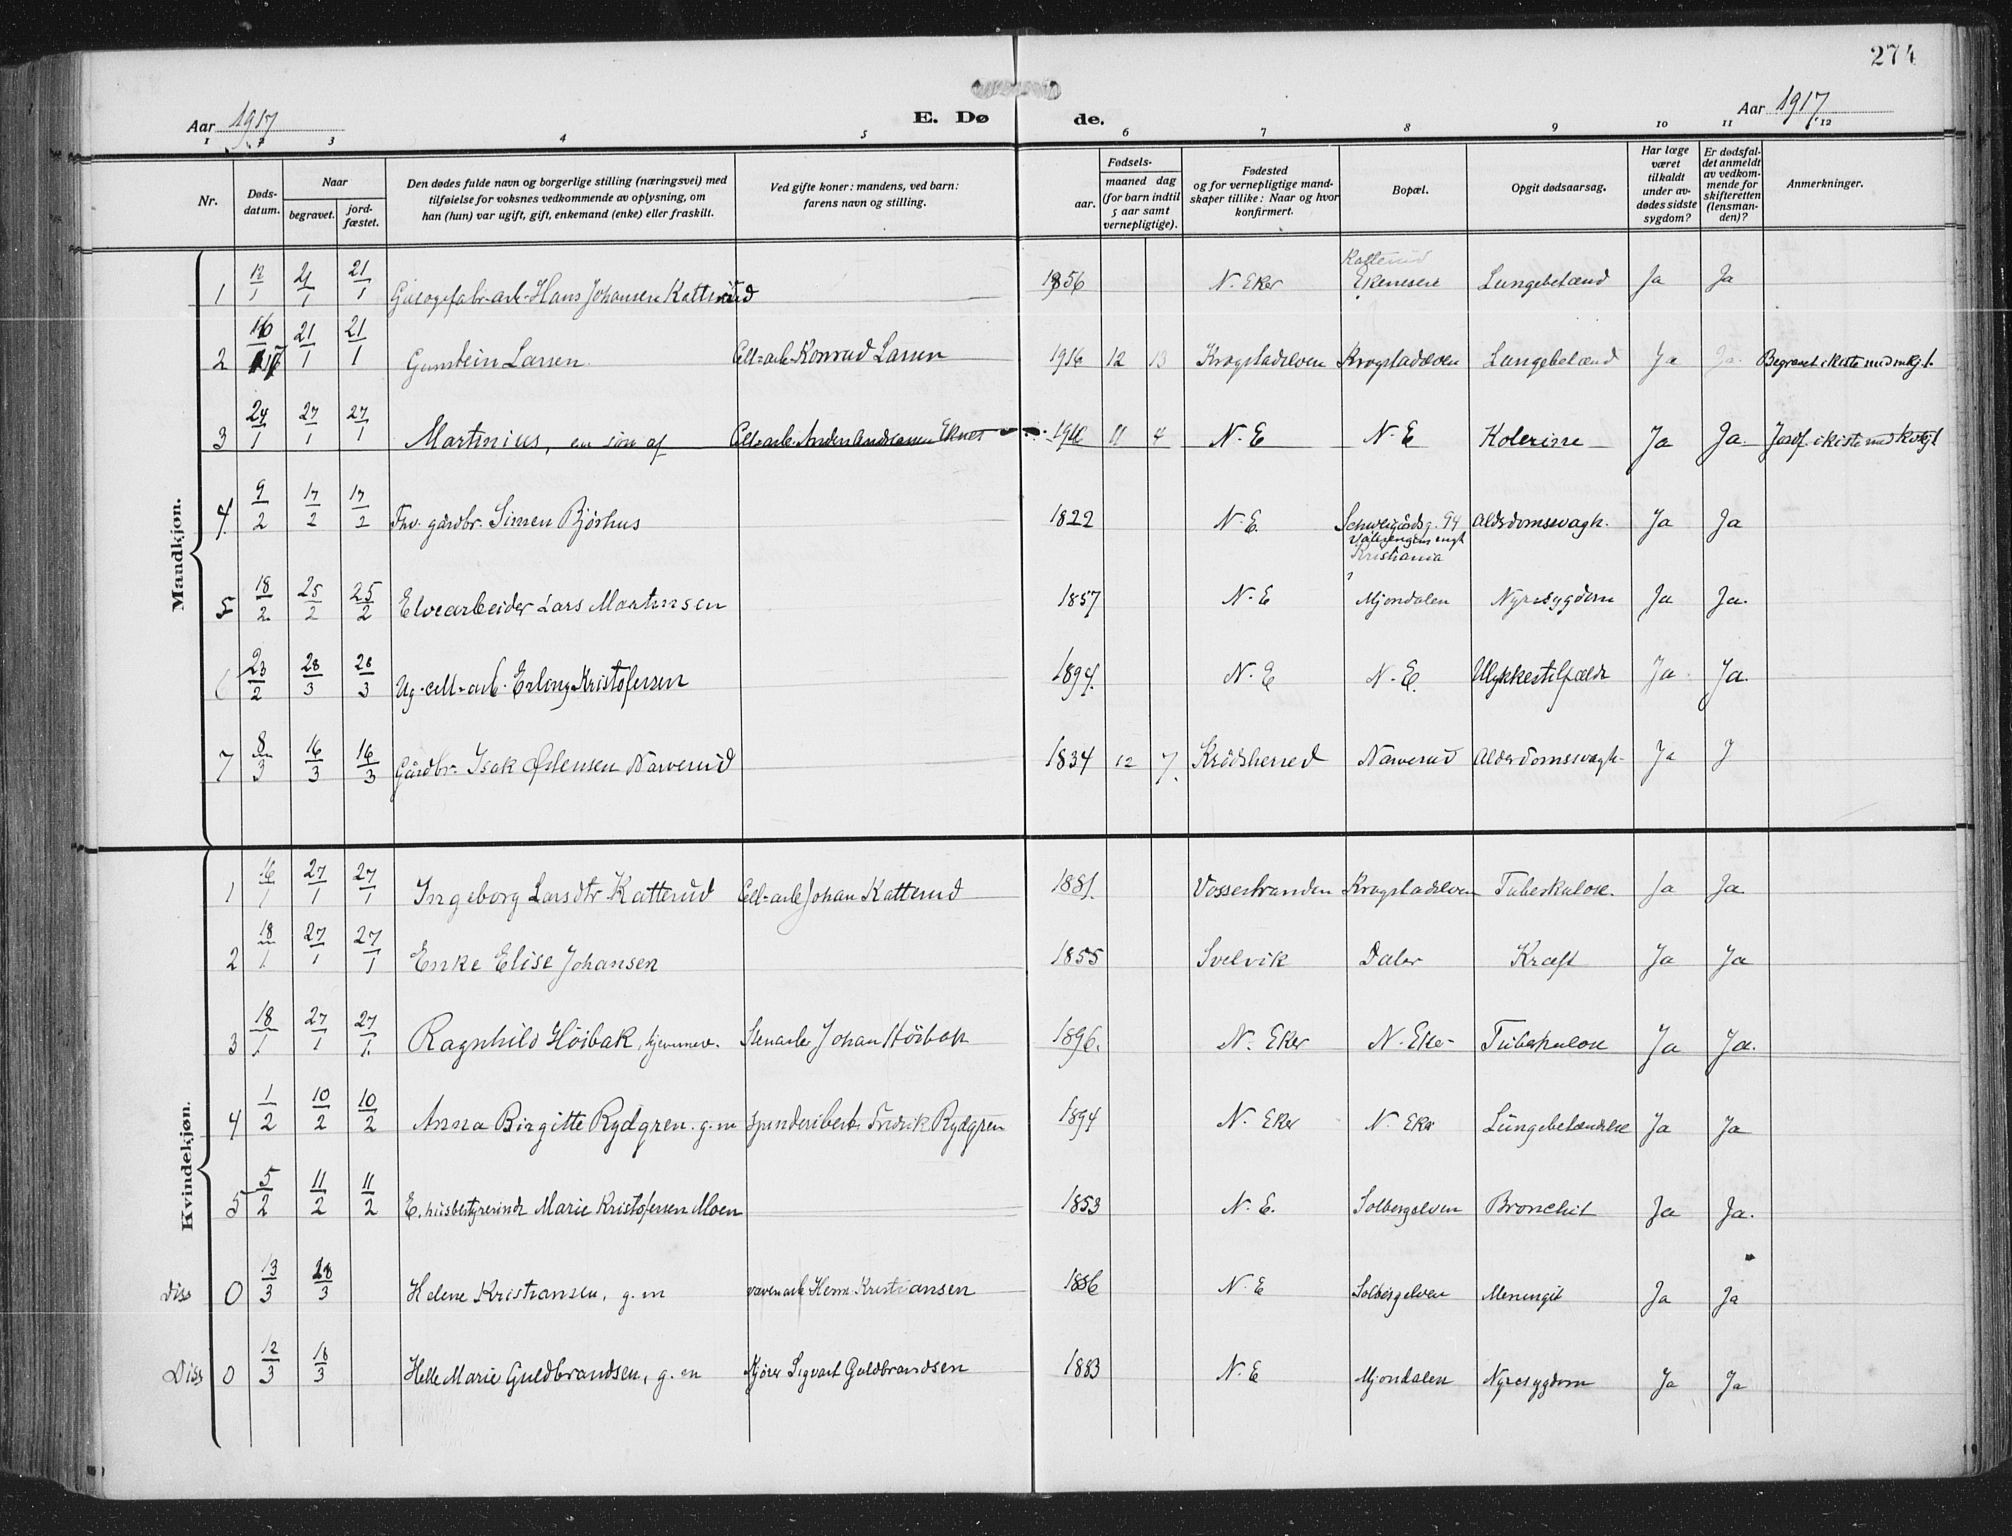 274
Aar 1917
E. Dø
de.
Aar 1917
1 2 3 4 5 6 7 8 9 10 11 12
Nr. Døds-datum. Naar begravet. jord-fæstet. Den dødes fulde navn og borgerlige stilling (næringsvei) med tilføielse for voksnes vedkommende av oplysning, om han (hun) var ugift, gift, enkemand (enke) eller fraskilt. Ved gifte koner: mandens, ved barn: farens navn og stilling. Fødsels- aar. maaned dag (for barn indtil 5 aar samt vernepligtige). Fødested og for vernepligtige mand-skaper tillike: Naar og hvor konfirmert. Bopæl. Opgit dødsaarsag. Har læge været tilkaldt under av-dødes sidste sygdom? Er dødsfal-det anmeldt av vedkom-mende for skifteretten (lensman-den)? Anmerkninger.
Mandkjøn.
1 12/1 21/1 21/1 Hans Johansen Katterud 1856 N. Eker Katterud Ekenesere Lungebetænd Ja Ja
2 16/1 17 21/1 21/1 Gunstein Larsen Cell-arb. Konrad Larsen 1916 12 13 Krogstadelven Krogstadelven Lungebetænd Ja Ja Begravet i kiste med
3 24/1 27/1 27/1 Martinius, en søn af Cell-arb. Anders Andersen Eknes 11 4 N. E N. E Kolerine Ja Ja. Jordf. i kiste med
4. 9/2 17/2 17/2 Fhv. gårdbr. Simen Bjørhus 1822 N. E. Schweigårdsg. 94 Kristiania Aldsdomssvagh. Ja Ja
5 18/2 25/2 25/2 Elvearbeider Lars Martinsen 1857 N. E Mjøndalen Nyresygdom Ja Ja.
6 23/2 28/3 28/3 Ug. cell-arb. Erling Kristofersen 1894. N. E N. E. Ulykkestilfælde Ja Ja.
7 8/3 16/3 16/3 Gårdbr. Isak Østensen Narverud 1834 12 7. Krødsherred Narverud Alderdomssvagh. Ja J
Kvindekjøn.
1 16/1 27/1 27/1 Ingeborg Larsdtr Katterud Cell-arb Johan Katterud 1881. Vossestranden Krogstadelven Tuberkulose. Ja Ja
2 18/1 27/1 27/1 Enke Elise Johansen 1855 Svelvik Daler Kræft Ja Ja
3 18/1 27/1 27/1. Ragnhild Høibak, hjemmev. Stenarb Johan Høibak 1896. N. Eker N. Eke- Tuberkulose Ja Ja.
4 1/2 10/2 10/2 Anna Birgitte Rydgren. g. m Fredrik Rydgren 1894 N. Eker N. Eker Lungebetændelse Ja Ja
5 5/2 11/2 11/2 E. husbestyrerinde Marie Kristofersen Moen 1853 N. E. Solbergelven Bronchit Ja Ja.
Diss 0 13/3 18/3 Helene Kristiansen, g. m væveriarb Herm. Kristiansen 1886 N. E Solbergelven Meningit Ja Ja
Diss 0 12/3 18/3 Helle Marie Guldbrandsen, g. m Kjører Sigvart Guldbrandsen 1883 N. E Mjøndalen Nyresygdom Ja Ja